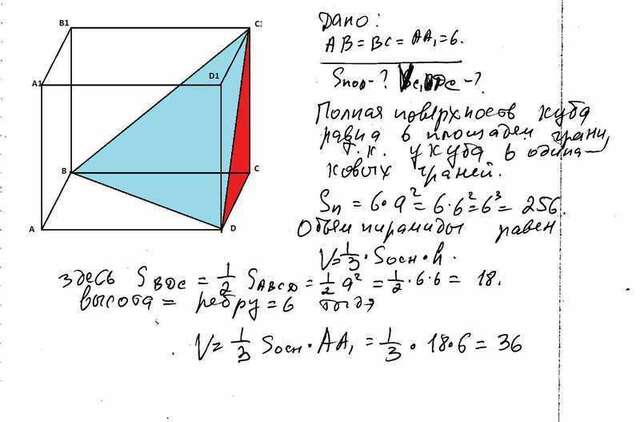 B1
C1
A1
D1
B
C
A
D
Дано:
AB = BC = AA₁ = 6.
Sпов - ?
- ?
Полная поверхность куба
равна 6 площадей грани,
т.к. у куба 6 одина-
ковых граней.
Sп = 6·a² = 6·6² = 6³ = 256.
Объем пирамиды равен
V = 1/3 · Sосн · h.
здесь S BDC = 1/2 S ABCD = 1/2 a² = 1/2 · 6 · 6 = 18.
высота = ребру = 6 тогда
V = 1/3 Sосн · AA₁ = 1/3 · 18 · 6 = 36